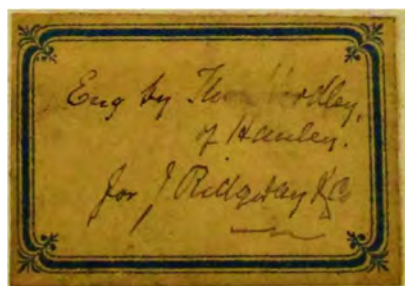 Eng by Thos
of Hanley.
for J Ridgway & Co